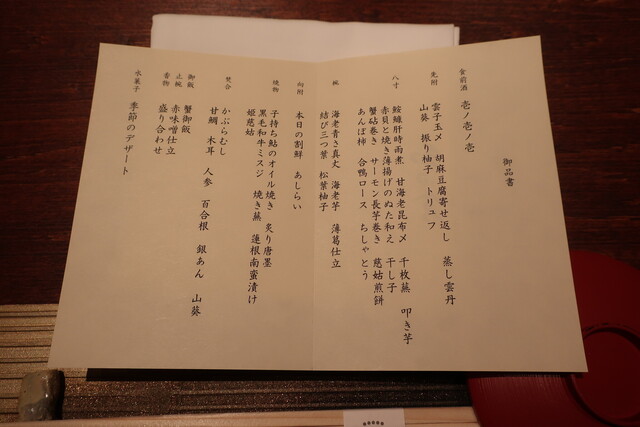 御品書
食前酒 壱ノ壱ノ壱
先附
雲子玉〆 胡麻豆腐寄せ返し 蒸し雲丹
山葵 振り柚子 トリュフ
八寸
鮟鱇肝時雨煮 甘海老昆布〆 千枚蕪 叩き芋
赤貝と焼き薄揚げのぬた和え 干し子
蟹砧巻き サーモン長芋巻き 慈姑煎餅
あんぽ柿 合鴨ロース ちしゃとう
椀
海老青さ真丈 海老芋 薄葛仕立
結び三つ葉 松葉柚子
向附
本日の割鮮 あしらい
焼物
子持ち鮎のオイル焼き 炙り唐墨
黒毛和牛ミスジ 焼き蕪 蓮根南蛮漬け
姫慈姑
焚合
かぶらむし
甘鯛 木耳 人参 百合根 銀あん 山葵
御飯 蟹御飯
止椀 赤味噌仕立
香物 盛り合わせ
水菓子 季節のデザート